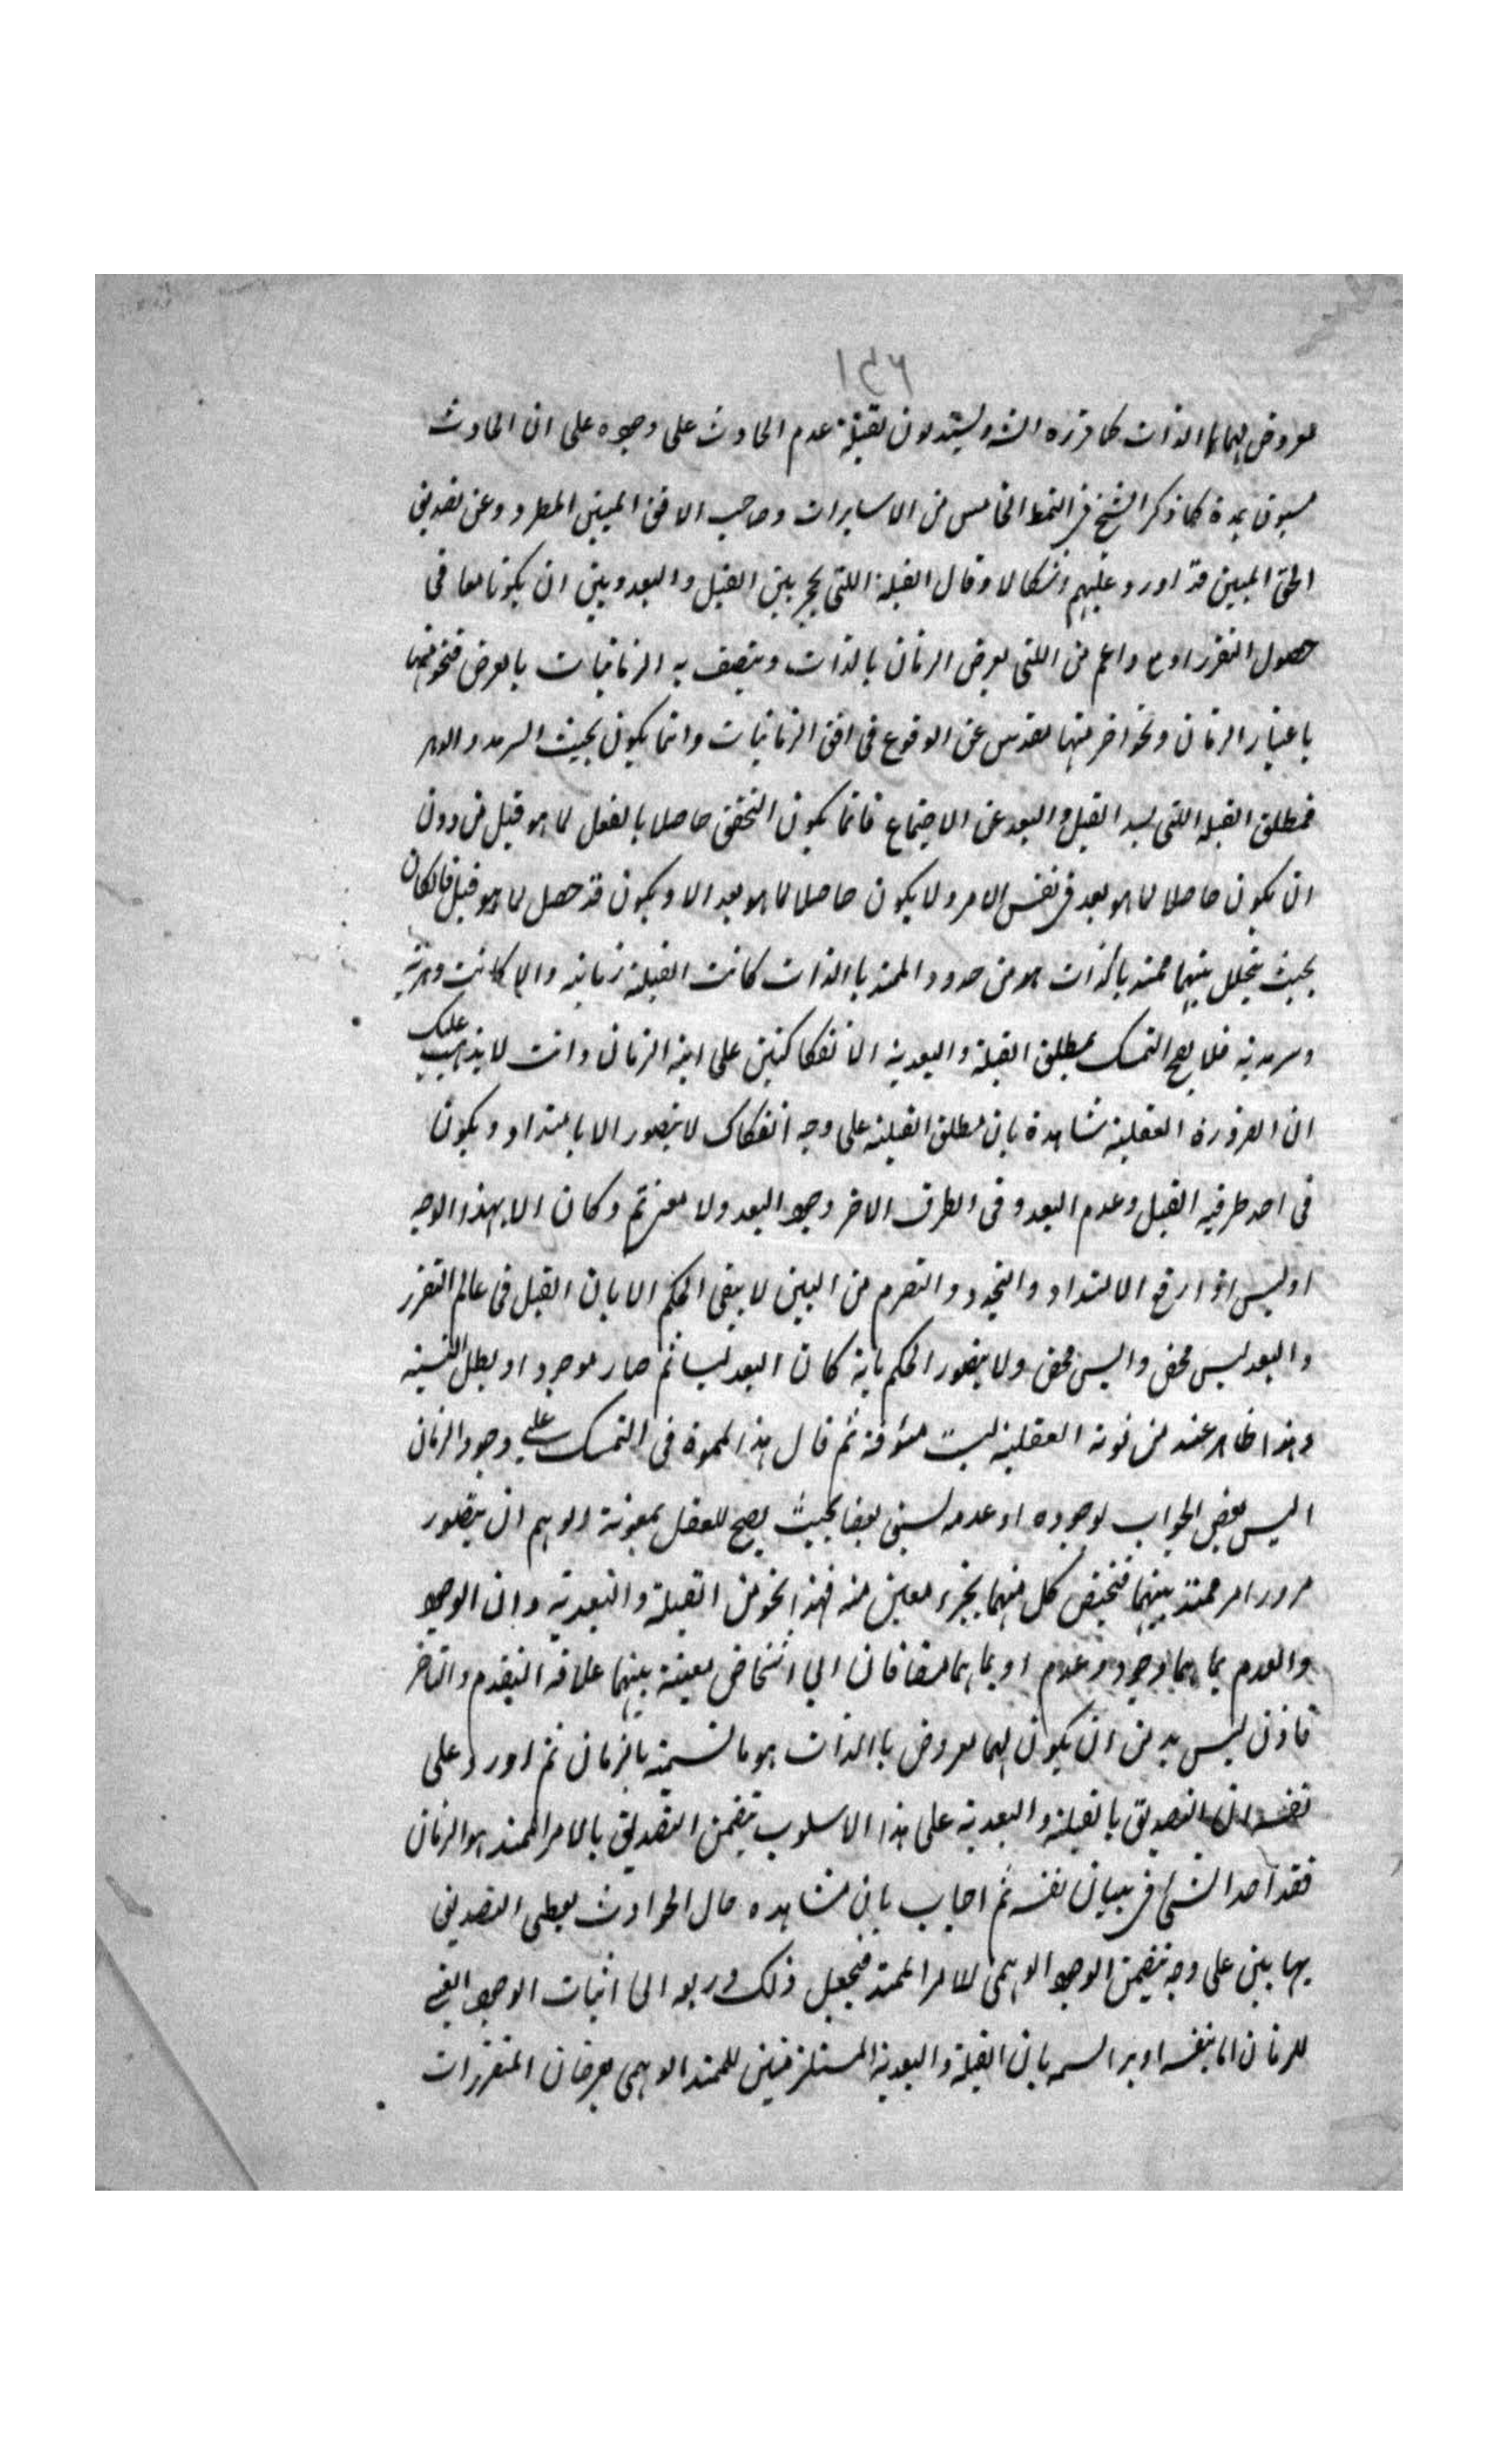 ١٤٦
معروض لهما بالذات كما قرره الشه ويستدلون بقبلية عدم الحادث على وجوده على ان الحادث
مسبوق بمدة كما ذكر الشيخ فى النمط الخامس من الاشارات وصاحب الافق المبين المطرود عن تصديق
الحق المبين قد اورد عليهم اشكالا وقال القبلية اللتى يحجر بين القبل والبعد وبين ان يكونا معا فى
حصول التقرر اعم من اللتى يعرض الزمان بالذات ويتصف به الزمانيات بالعرض فنحو منها
باعتبار الزمان ونحو اخر منها تقدس عن الوقوع فى افق الزمانيات وانما يكون بحيث السرمد والدهر
فمطلق القبلية اللتى القبل والبعد عن الاجتماع فانما يكون التحقق حاصلا بالفعل لما هو قبل من دون
ان يكون حاصلا لما هو بعد فى نفس الامر ولا يكون حاصلا لما هو بعد الا ويكون قد حصل لما هو قبل فان كان
بحيث يتخلل بينهما ممتد بالذات او من حدود الممتد بالذات كانت القبلية زمانية والا كانت دهرية
وسرمدية فلا يصح التمسك بمطلق القبلية والبعدية الانفكاكيتين على انية الزمان وانت لا يذهب عليك
ان الضرورة العقلية شاهدة بان مطلق القبلية على وجه انفكاك لا يتصور الا بامتداد ويكون
فى احد طرفيه القبل وعدم البعد وفى الطرف الاخر وجود البعد ولا معنى ثم وكان الا بهذا الوجه
اوليس اذا ارتفع الامتداد والتجدد والتصرم من البين لا يبقى الحكم الا بان القبل فى عالم التقرر
والبعد ليس محض وايس محض ولا يتصور الحكم بانه كان البعد ليسا ثم صار موجودا وبطل
وهذا ظاهر عند من قوته العقلية ليست مئوفة ثم قال هذا المموه فى التمسك على وجود الزمان
اليس بعض الحوادث لوجوده او عدمه لسبق بعضا بحيث يصح للعقل بمعونة الوهم ان يتصور
مرور امر ممتد بينهما فيختص كل منهما بجزء معين منه فهذا نحو من القبلية والبعدية وان الوجود
والعدم بما هما وجود وعدم او بما هما مضافان الى اشخاص معينة بينهما علاقة التقدم والتاخر
فاذن ليس بد من ان يكون لهما معروض بالذات هو ما نسميه بالزمان ثم اورد على
نفسه ان التصديق بالقبلية والبعدية على هذا الاسلوب يتضمن التصديق بالامر الممتد هو الزمان
فقد اخذ الشئ فى بيان نفسه ثم اجاب بان مشاهدة حال الحوادث يعطى التصديق
بهما بين على وجه يتضمن الوجود الوهمى للامر الممتد فيجعل ذلك الى اثبات الوجود العينى
للزمان اما بنفسه او براسمه بان القبلية والبعدية المستلزمتين للممتد الوهمى يعرضان المتقررات